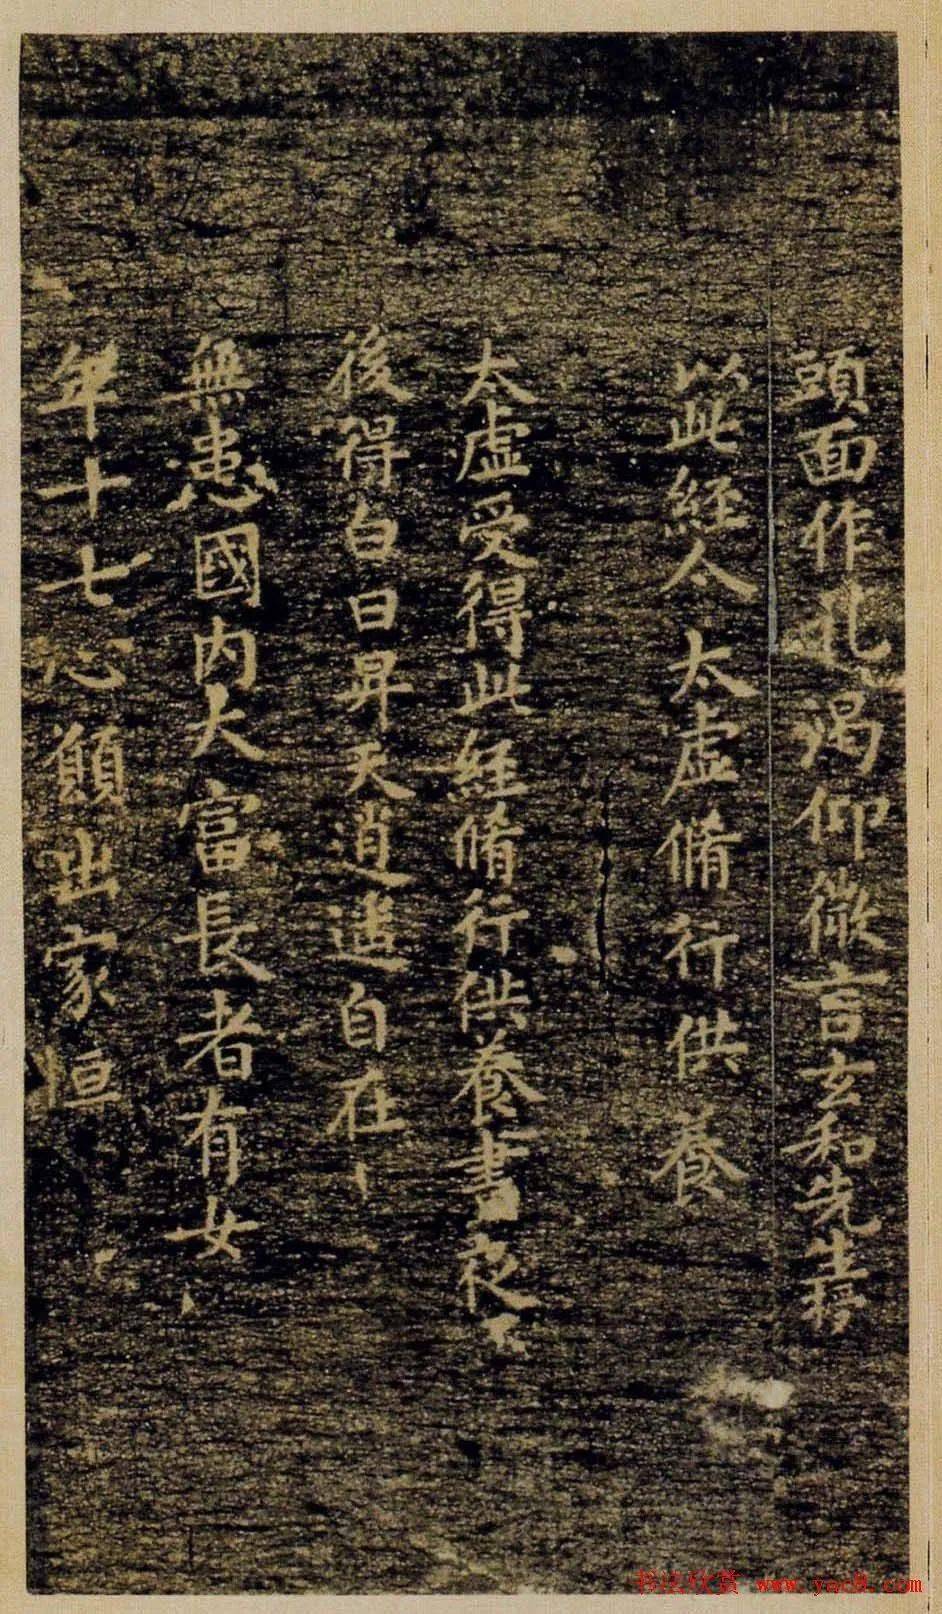 頭面作礼渴仰微言玄和先生將
以此經令太虛脩行供養
太虛受得此經脩行供養書夜不
後得白日昇天逍遙自在
無患國內大富長者有女
年十七心願出家恒
书法欣赏 www.yac8.com